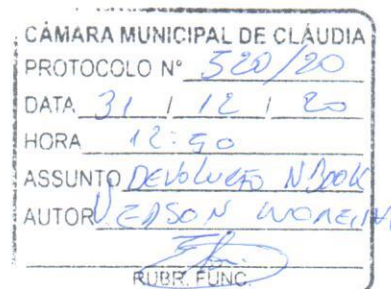 CÂMARA MUNICIPAL DE CLÁUDIA
PROTOCOLO Nº 520/20
DATA 31 / 12 / 20
HORA 12:50
ASSUNTO DEVOLUÇÃO NBOOK
AUTOR EDSON MOREIRA
RUBR. FUNC.